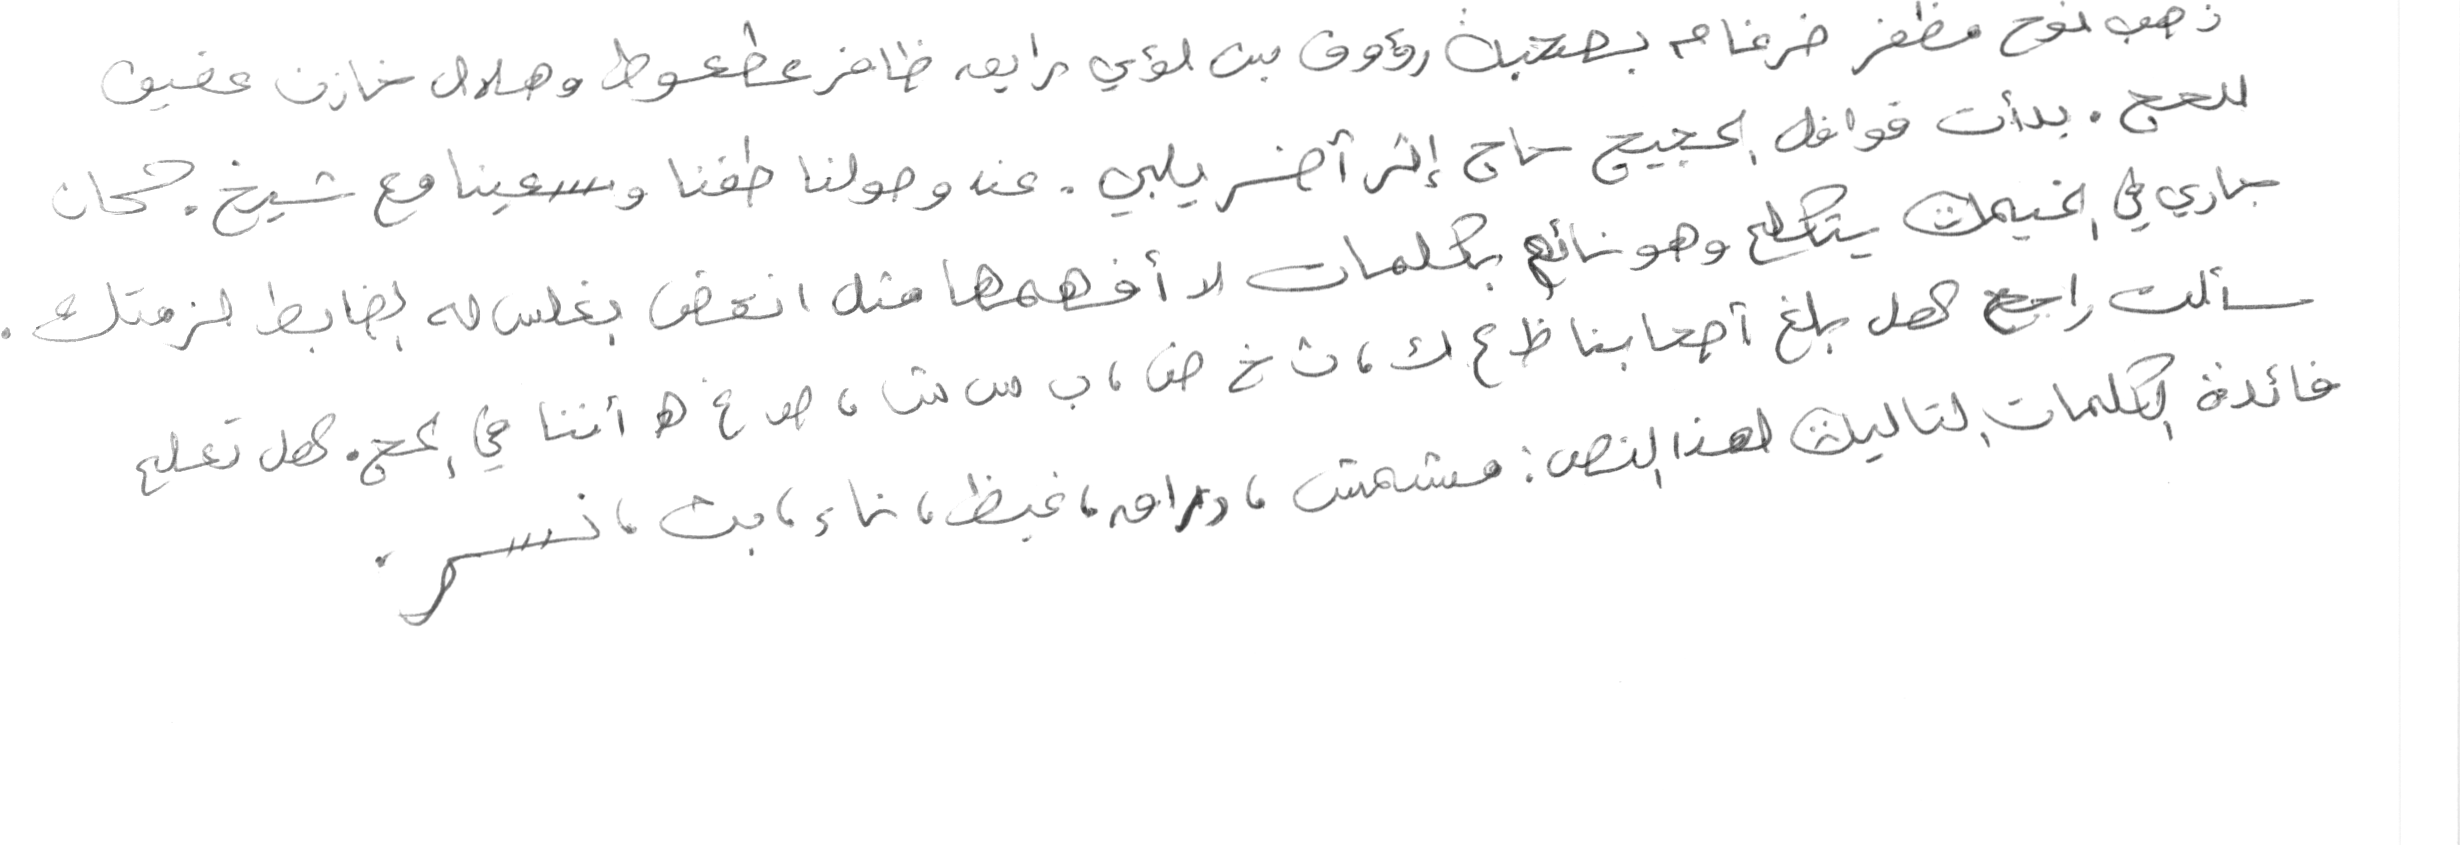 ذهب نوح مظفر ضرغام بصحبة رؤوف بن لؤي رايق ظافر عطعوط وهلال خازن عفيف
للحج. بدأت قوافل الحجيج حاج إثر آخر يلبي. عند وصولنا طفنا وسعينا مع شيخ. كان
جاري في الخيمة يتكلم وهو نائم بكلمات لا أفهمها مثل انقض بغلس له الضابط لزمتك.
سألت راجح هل بلغ أصحابنا ظ ع ك، ث خ ض، ب س ش، ص غ ه أننا في الحج. هل تعلم
فائدة الكلمات التالية لهذا النص: مشمش، دراق، غيظ، ناء، بث، نسر.